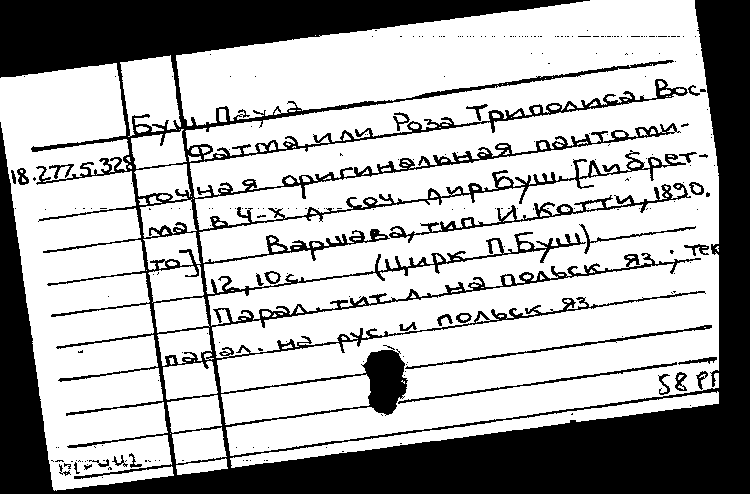 Буш, Паула
18.277.5.328
Фатма, или Роза Триполиса. Вос-
точная оригинальная пантоми-
ма в 4-х д. соч. дир. Буш. [Либрет-
то]. Варшава, тип. И. Котти, 1890.
12, 10 с. (Цирк П. Буш).
Парал. тит. л. на польск. яз.; тек
парал. на рус. и польск. яз.
58 РП